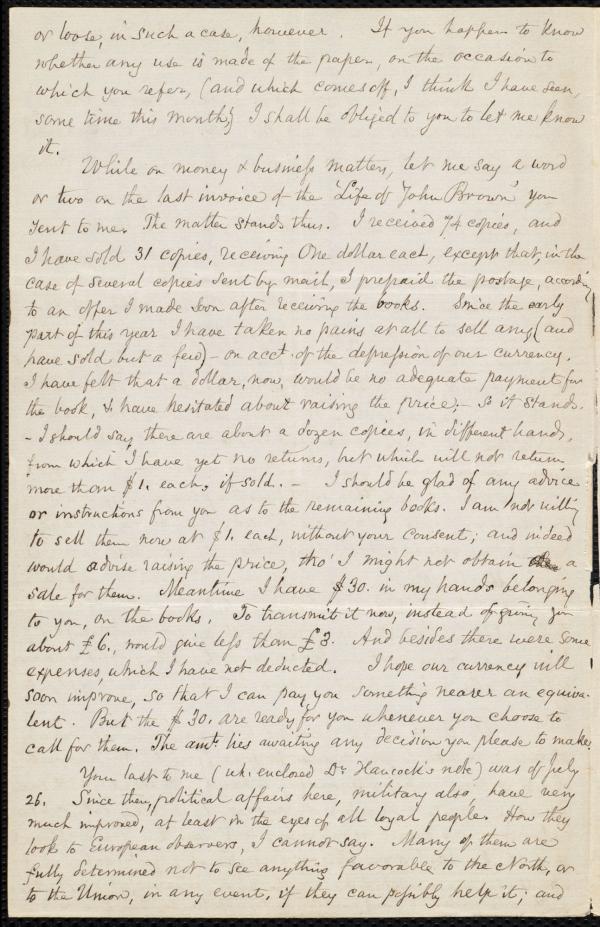 or loose, in such a case, however. If you happen to know
whether any use is made of the paper, on the occasion to
which you refer, (and which comes off, I think I have seen,
some time this month,) I shall be obliged to you to let me know
it.
While on money & business matters, let me say a word
or two on the last invoice of the 'Life of John Brown' you
sent to me. The matter stands thus. I received 74 copies, and
I have sold 31 copies, receiving One dollar each, except that, in the
case of several copies sent by mail, I prepaid the postage, according
to an offer I made soon after receiving the books. Since the early
part of this year I have taken no pains at all to sell any (and
have sold but a few) – on acct. of the depression of our currency.
I have felt that a dollar, now, would be no adequate payment for
the book, & have hesitated about raising the price; – So it stands.
– I should say, there are about a dozen copies, in different hands,
from which I have yet no returns, but which will not return
more than $1. each, if sold. – I should be glad of any advice
or instructions from you as to the remaining books. I am not willing
to sell them now at $1. each, without your consent; and indeed
would advise raising the price, tho' I might not obtain a
sale for them. Meantime I have $30. in my hands belonging
to you, on the books. To transmit it now, instead of giving you
about £6., would give less than £3. And besides there were some
expenses, which I have not deducted. I hope our currency will
soon improve, so that I can pay you something nearer an equiva-
lent. But the $30. are ready for you whenever you choose to
call for them. The amt. lies awaiting any decision you please to make.
Your last to me (wh. enclosed Dr. Hancock's note) was of July
26. Since then, political affairs here, military also, have very
much improved, at least in the eyes of all loyal people. How they
look to European observers, I cannot say. Many of them are
fully determined not to see anything favorable to the North, or
to the Union, in any event, if they can possibly help it; and